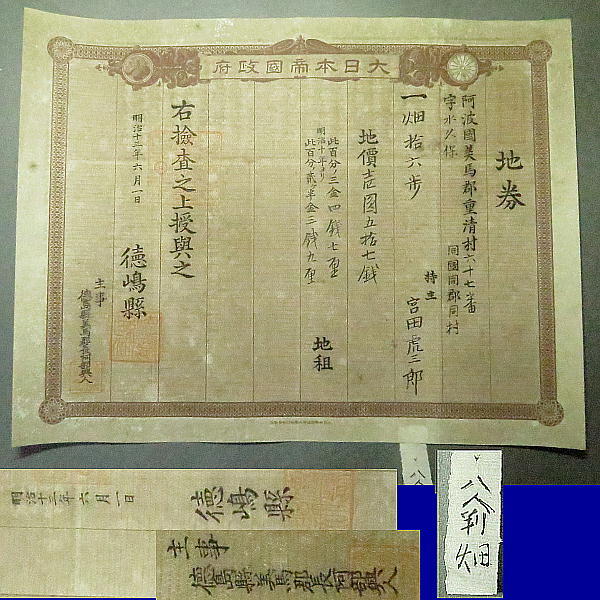 大日本帝國政府
地券
阿波國美馬郡重清村六十七番
字水久保
同國同郡同村
持主 宮田虎三郎
一畑拾六歩
地價壱圓五拾七銭
此百分ノ三金四銭七厘
明治十年ヨリ
此百分ノ貳ヶ半金三銭九厘
地租
右檢査之上授與之
明治十三年六月一日
徳嶋縣
主事
明治十三年六月一日
徳嶋縣
主事
八人判
畑